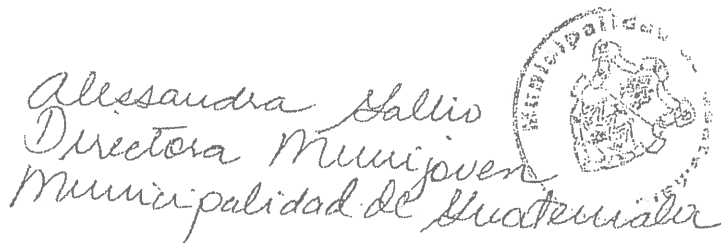 Alessandra Gallio
Directora Munijoven
Municipalidad de Guatemala
Municipalidad